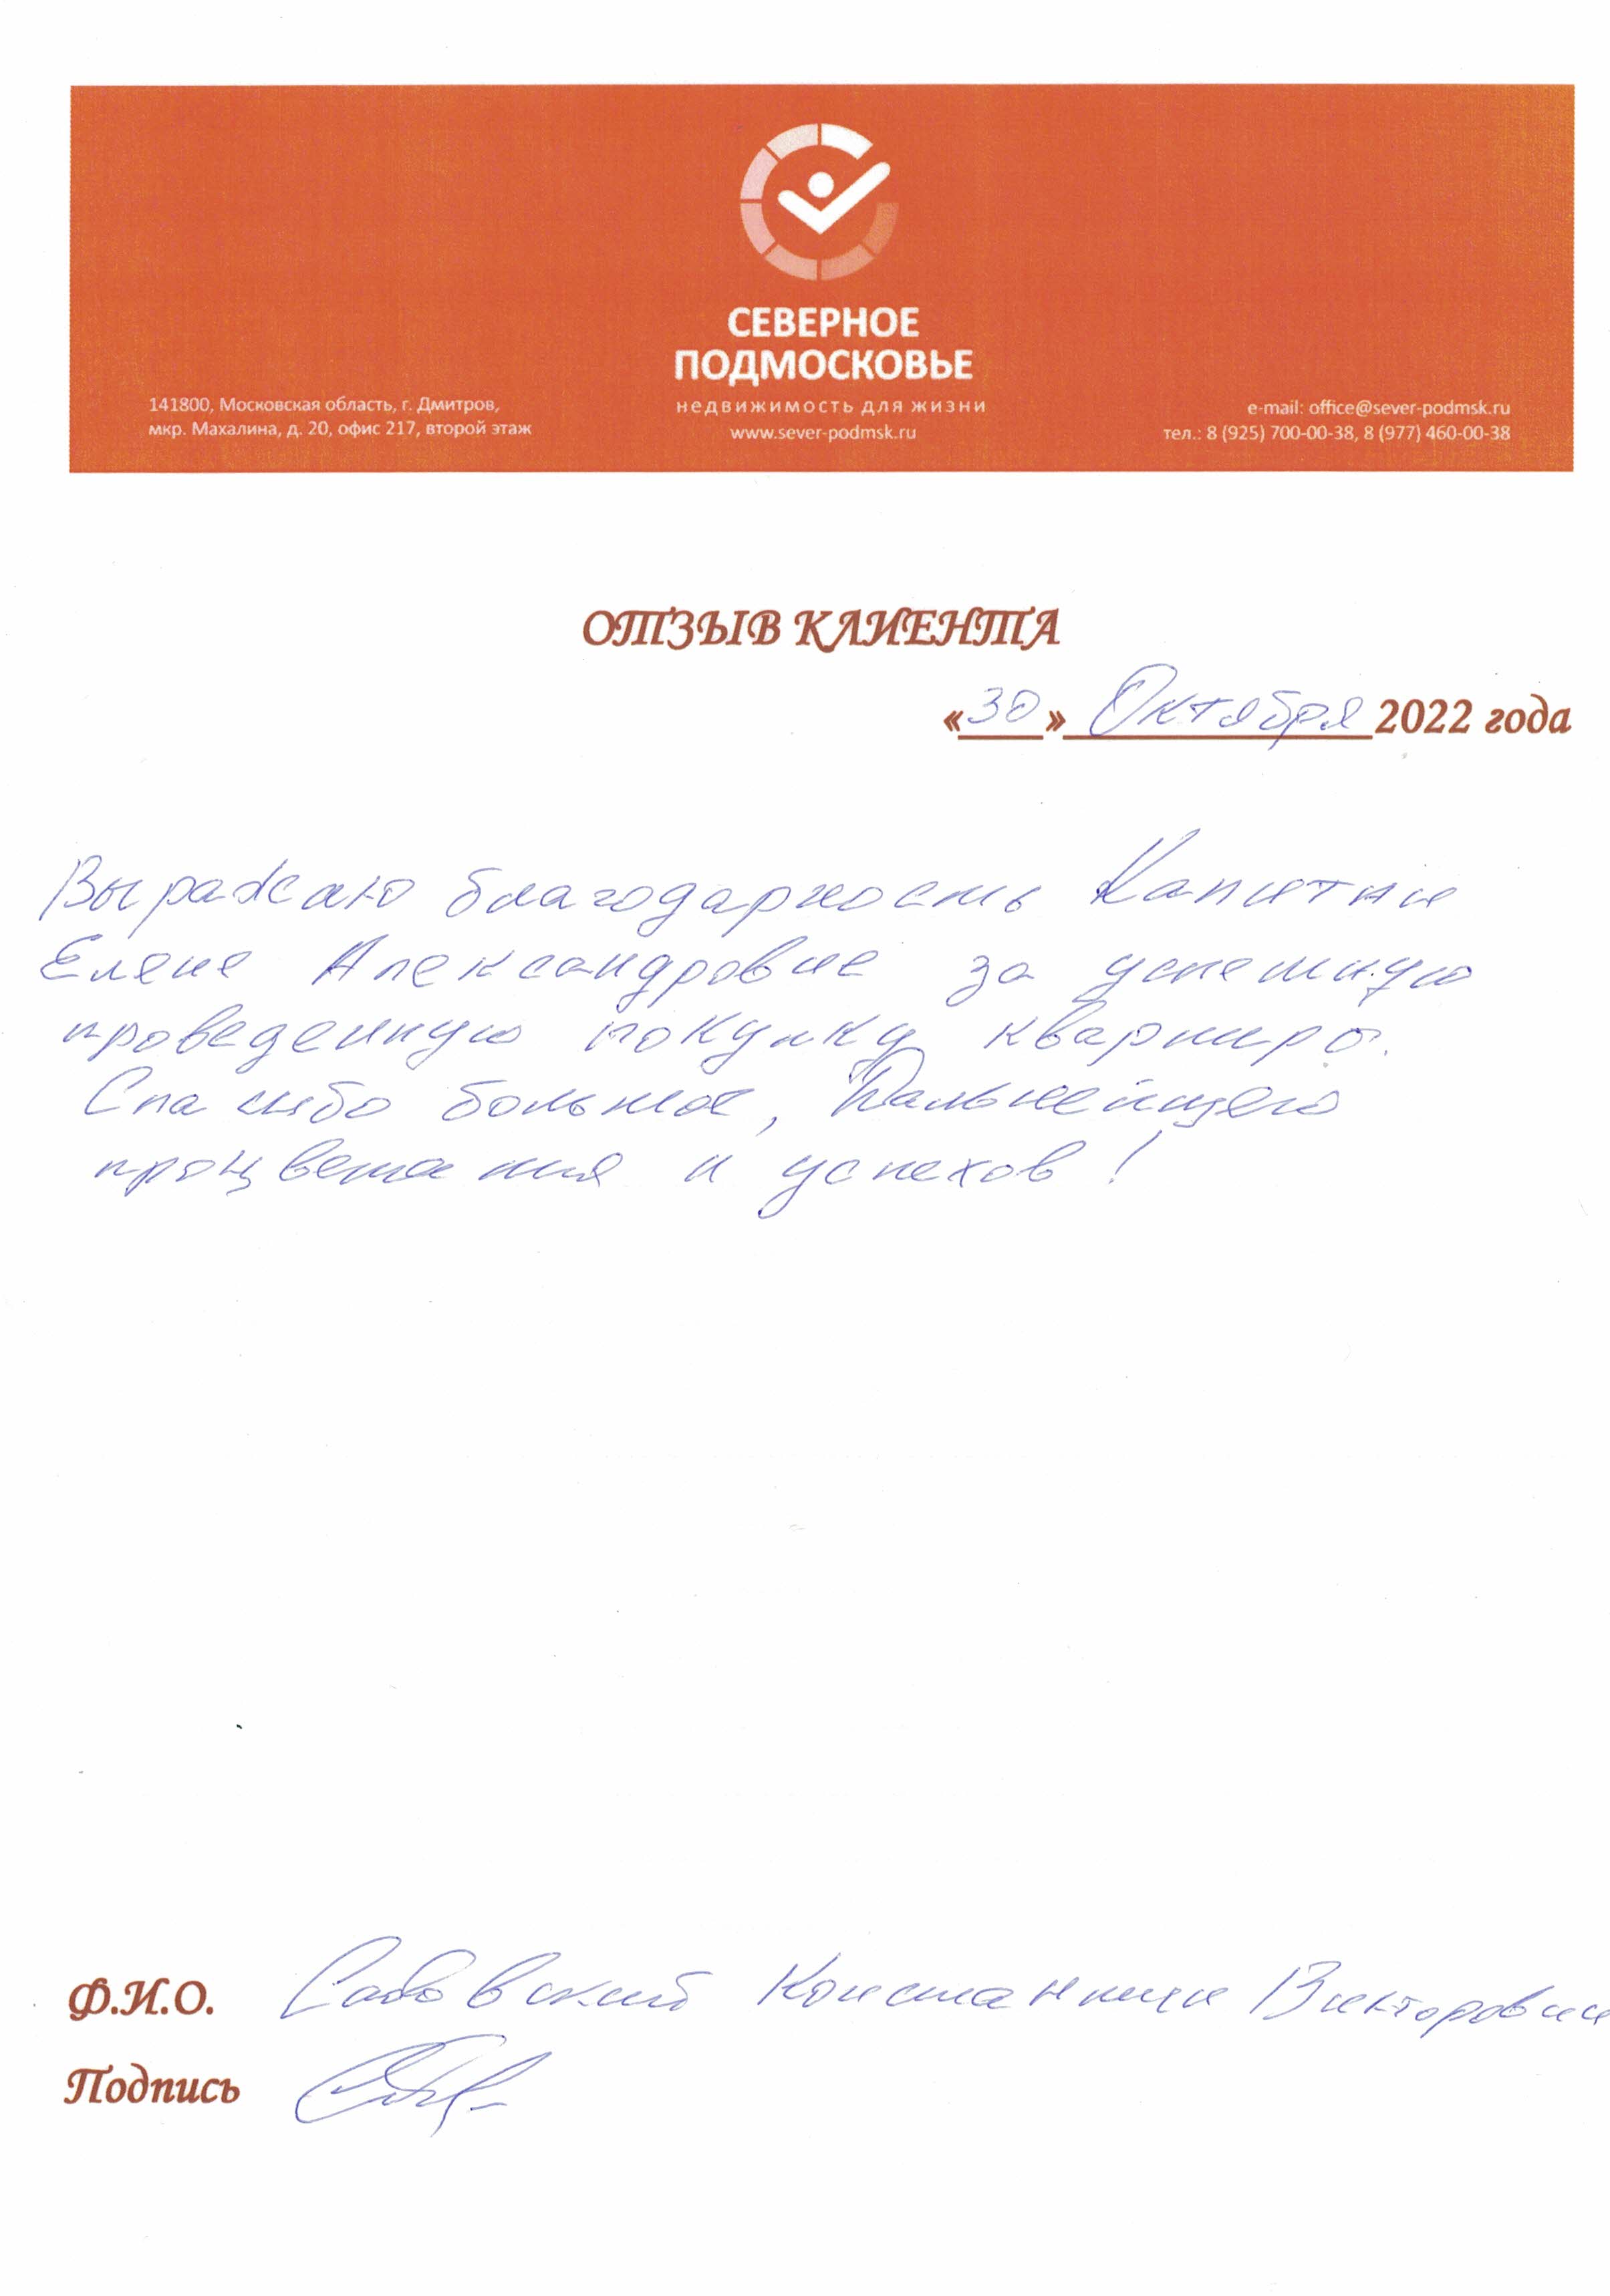 СЕВЕРНОЕ
ПОДМОСКОВЬЕ
недвижимость для жизни
www.sever-podmsk.ru
141800, Московская область, г. Дмитров,
мкр. Махалина, д. 20, офис 217, второй этаж
e-mail: office@sever-podmsk.ru
тел.: 8 (925) 700-00-38, 8 (977) 460-00-38
ОТЗЫВ КЛИЕНТА
«30» Октября 2022 года
Выражаю благодарность
Елене Александровне за успешную
проведенную покупку квартиры.
Спасибо большое, Дальнейшего
процветания и успехов!
Ф.И.О. Садовский Константин Викторович
Подпись